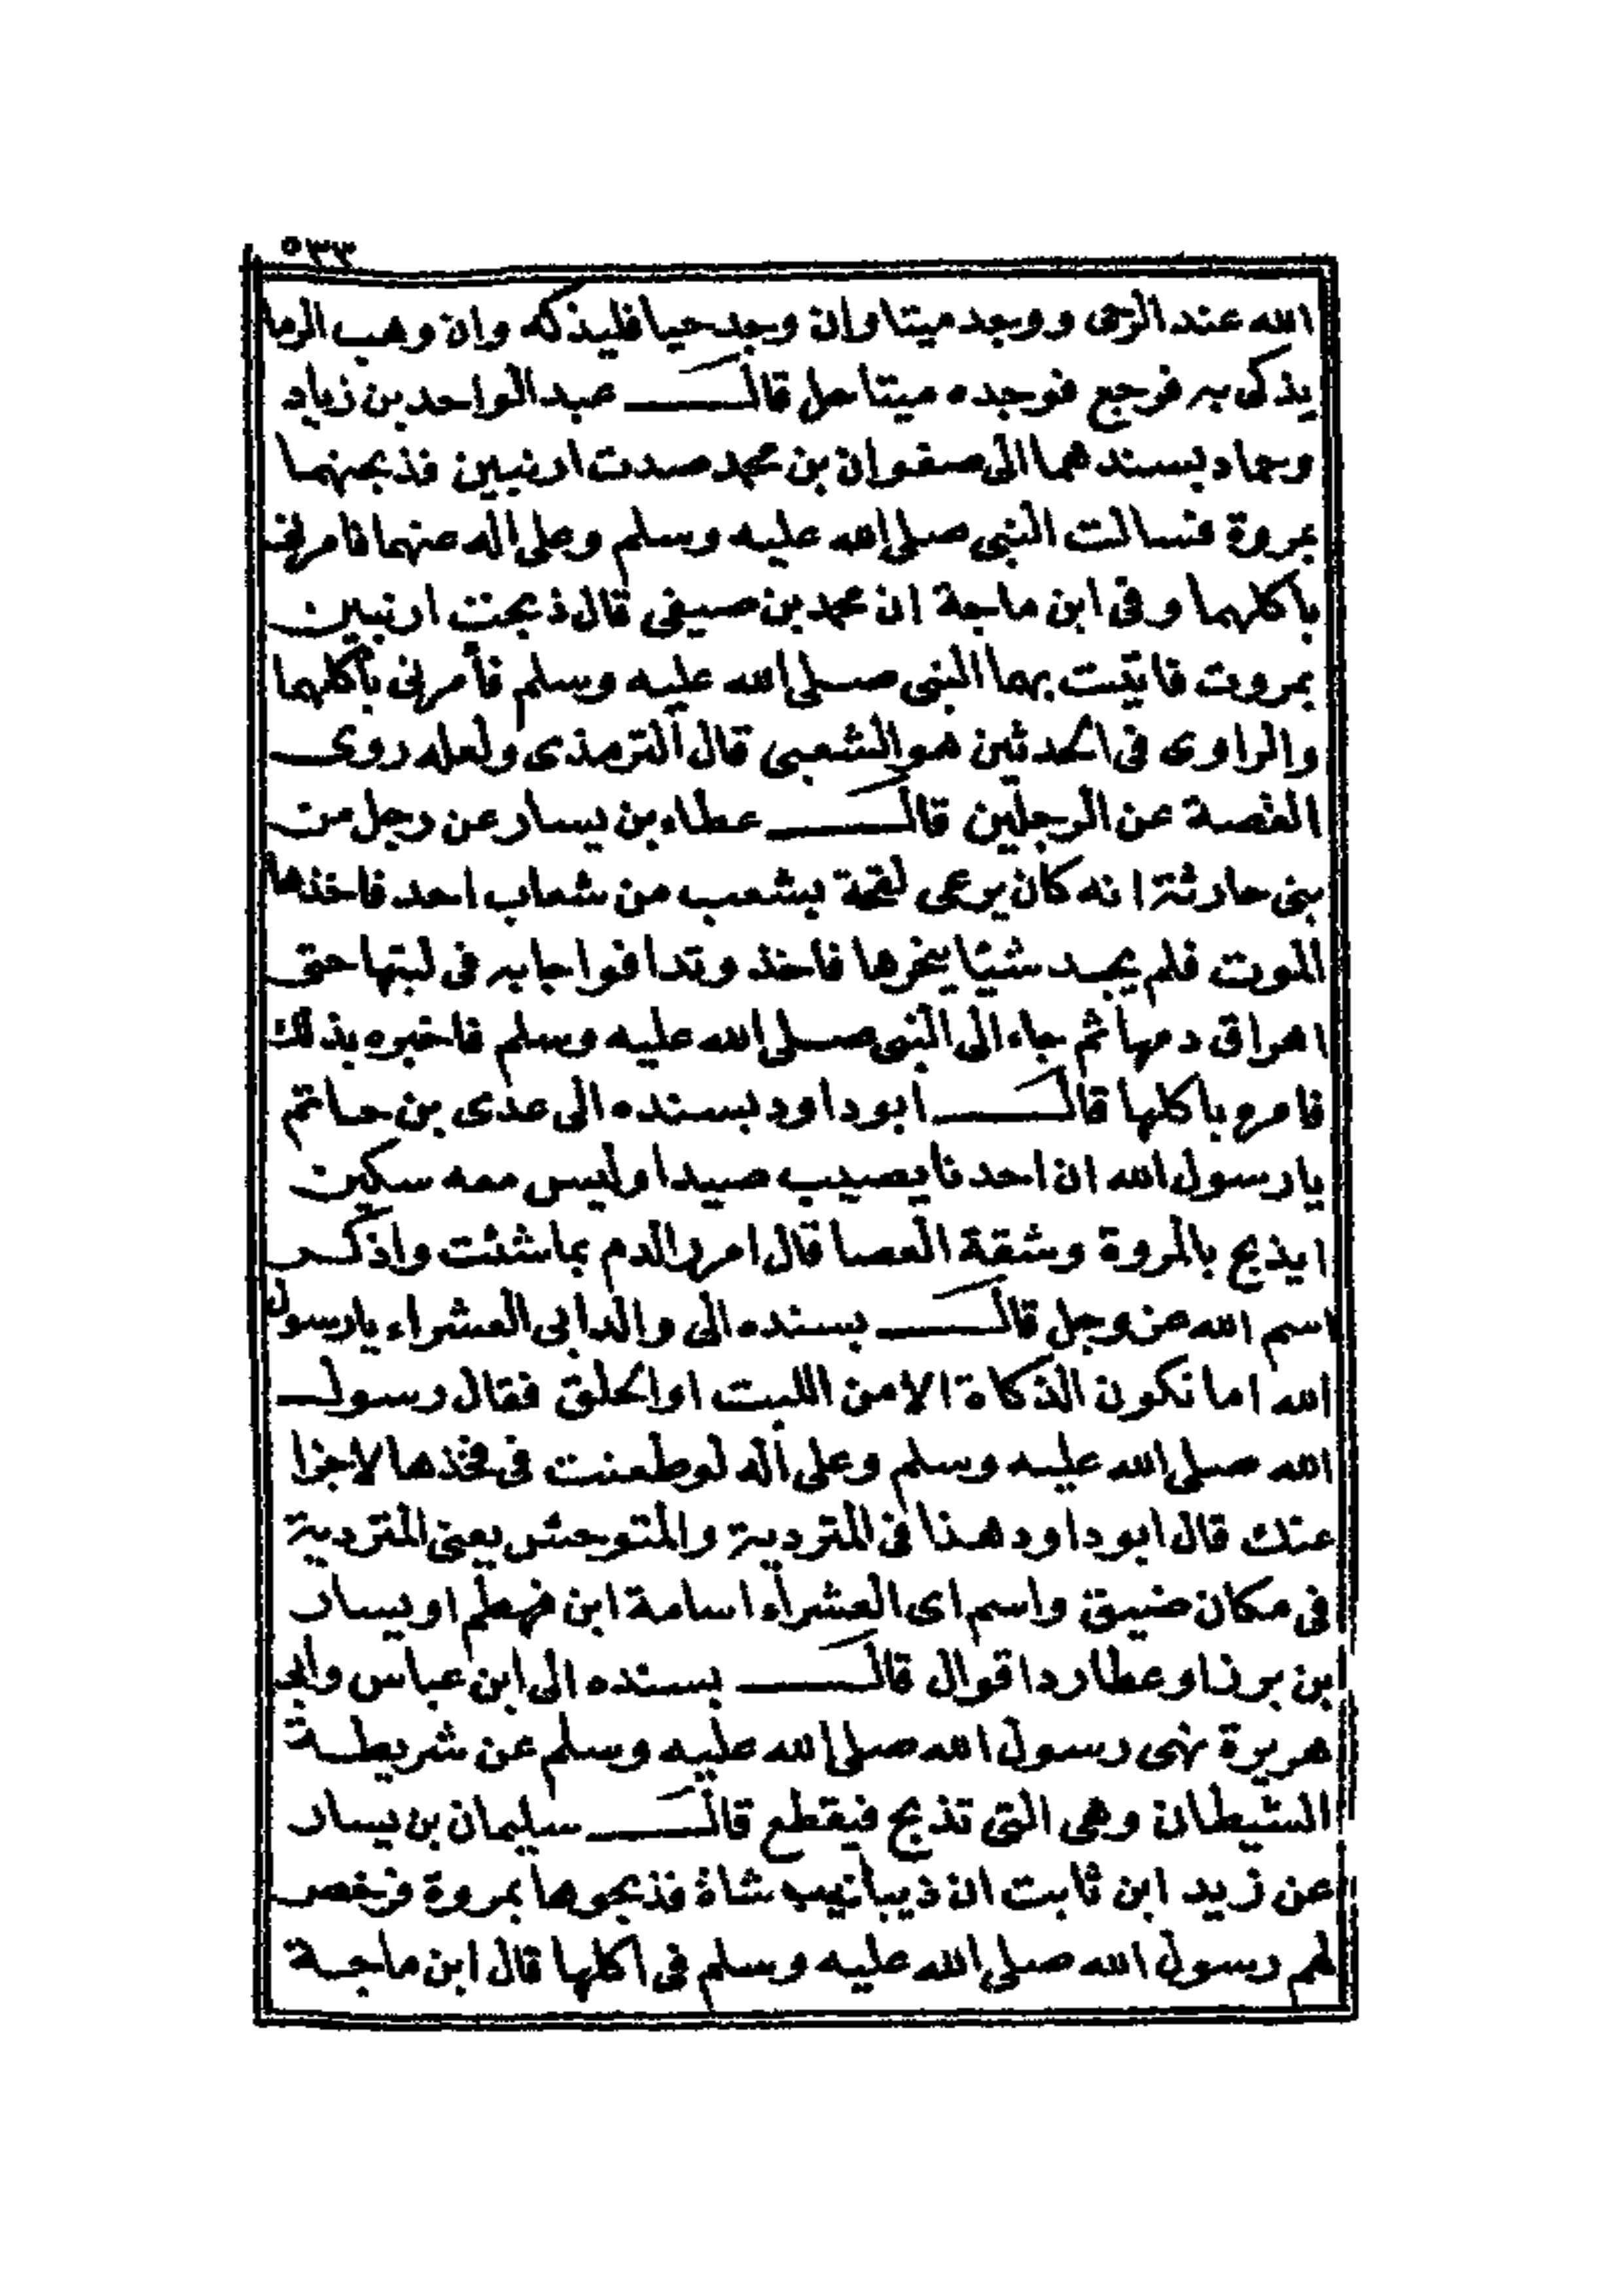 ٥٣٣
الله عند الرمى ووجد ميتا وان وجد حيا فليذكه وان وهب الرما
يذكى به فرجع فوجده ميتا حل قال عبد الواحد بن زياد
وحماد بسندهما الى صفوان بن محمد صدت ارنبين فذبحتهما
بمروة فسالت النبى صلى الله عليه وسلم وعلى آله عنهما فامرنى
باكلهما وفى ابن ماجة ان محمد بن صيفى قال ذبحت ارنبين
بمروت فاتيت بهما النبى صلى الله عليه وسلم فأمرنى بأكلهما
والراوى فى الحدثين هو الشعبى قال الترمذى ولعله روى
القصة عن الرجلين قال عطاء بن يسار عن رجل من
بنى حارثة انه كان يرعى لقحة بشعب من شعاب احد فاخذها
الموت فلم يجد شيئا ينحرها فاخذ وتدا فواجا به فى لبتها حتى
اهراق دمها ثم جاء الى النبى صلى الله عليه وسلم فاخبره بذلك
فامره باكلها قال ابو داود بسنده الى عدى بن حاتم
يا رسول الله ان احدنا يصيب صيدا وليس معه سكين
ايذبح بالمروة وشقة العصا قال امرر الدم بما شئت واذكر
اسم الله عز وجل قال بسنده الى والد ابى العشراء يا رسول
الله اما تكون الذكاة الا من اللبت او الحلق فقال رسول
الله صلى الله عليه وسلم وعلى آله لو طعنت فى فخذها لاجزا
عنك قال ابو داود هذا فى المتردية والمتوحش يعنى المتردية
فى مكان ضيق واسم اى العشراء اسامة ابن قهطم او يسار
بن برز او عطارد اقوال قال بسنده الى ابن عباس وابى
هريرة نهى رسول الله صلى الله عليه وسلم عن شريطة
الشيطان وهى التى تذبح فيقطع قال سليمان بن يسار
عن زيد ابن ثابت ان ذيبا نيب شاة فذبحوها بمروة فرخص
لهم رسول الله صلى الله عليه وسلم فى اكلها قال ابن ماجة